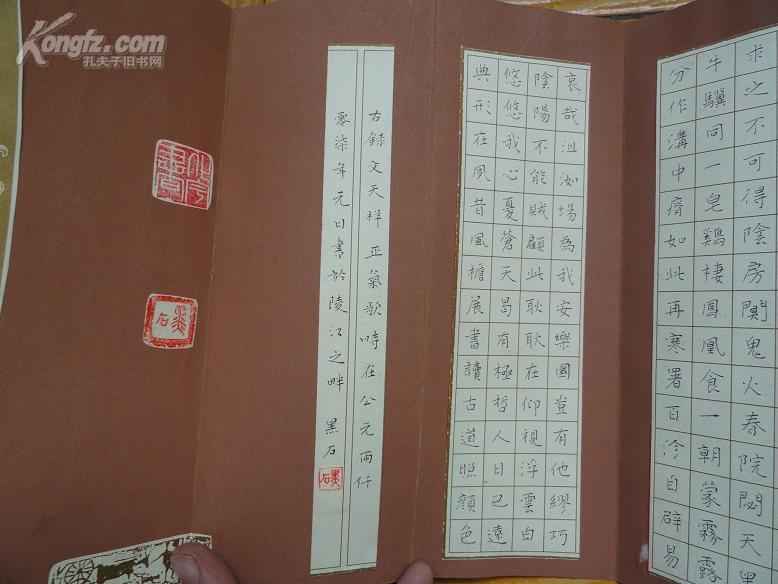 Kongfz.com
孔夫子旧书网
求之不可得陰房闃鬼火春院閟天黑
牛驥同一皂鷄棲鳳凰食一朝蒙霧露
分作溝中瘠如此再寒署百沴自辟易
哀哉沮洳場為我安樂國豈有他繆巧
陰陽不能賊顧此耿耿在仰視浮雲白
悠悠我心憂蒼天曷有極哲人日已遠
典形在夙昔風檐展書讀古道照顔色
右錄文天祥正氣歌時在公元兩仟
零柒年元日書於陵江之畔 黑石
黑石